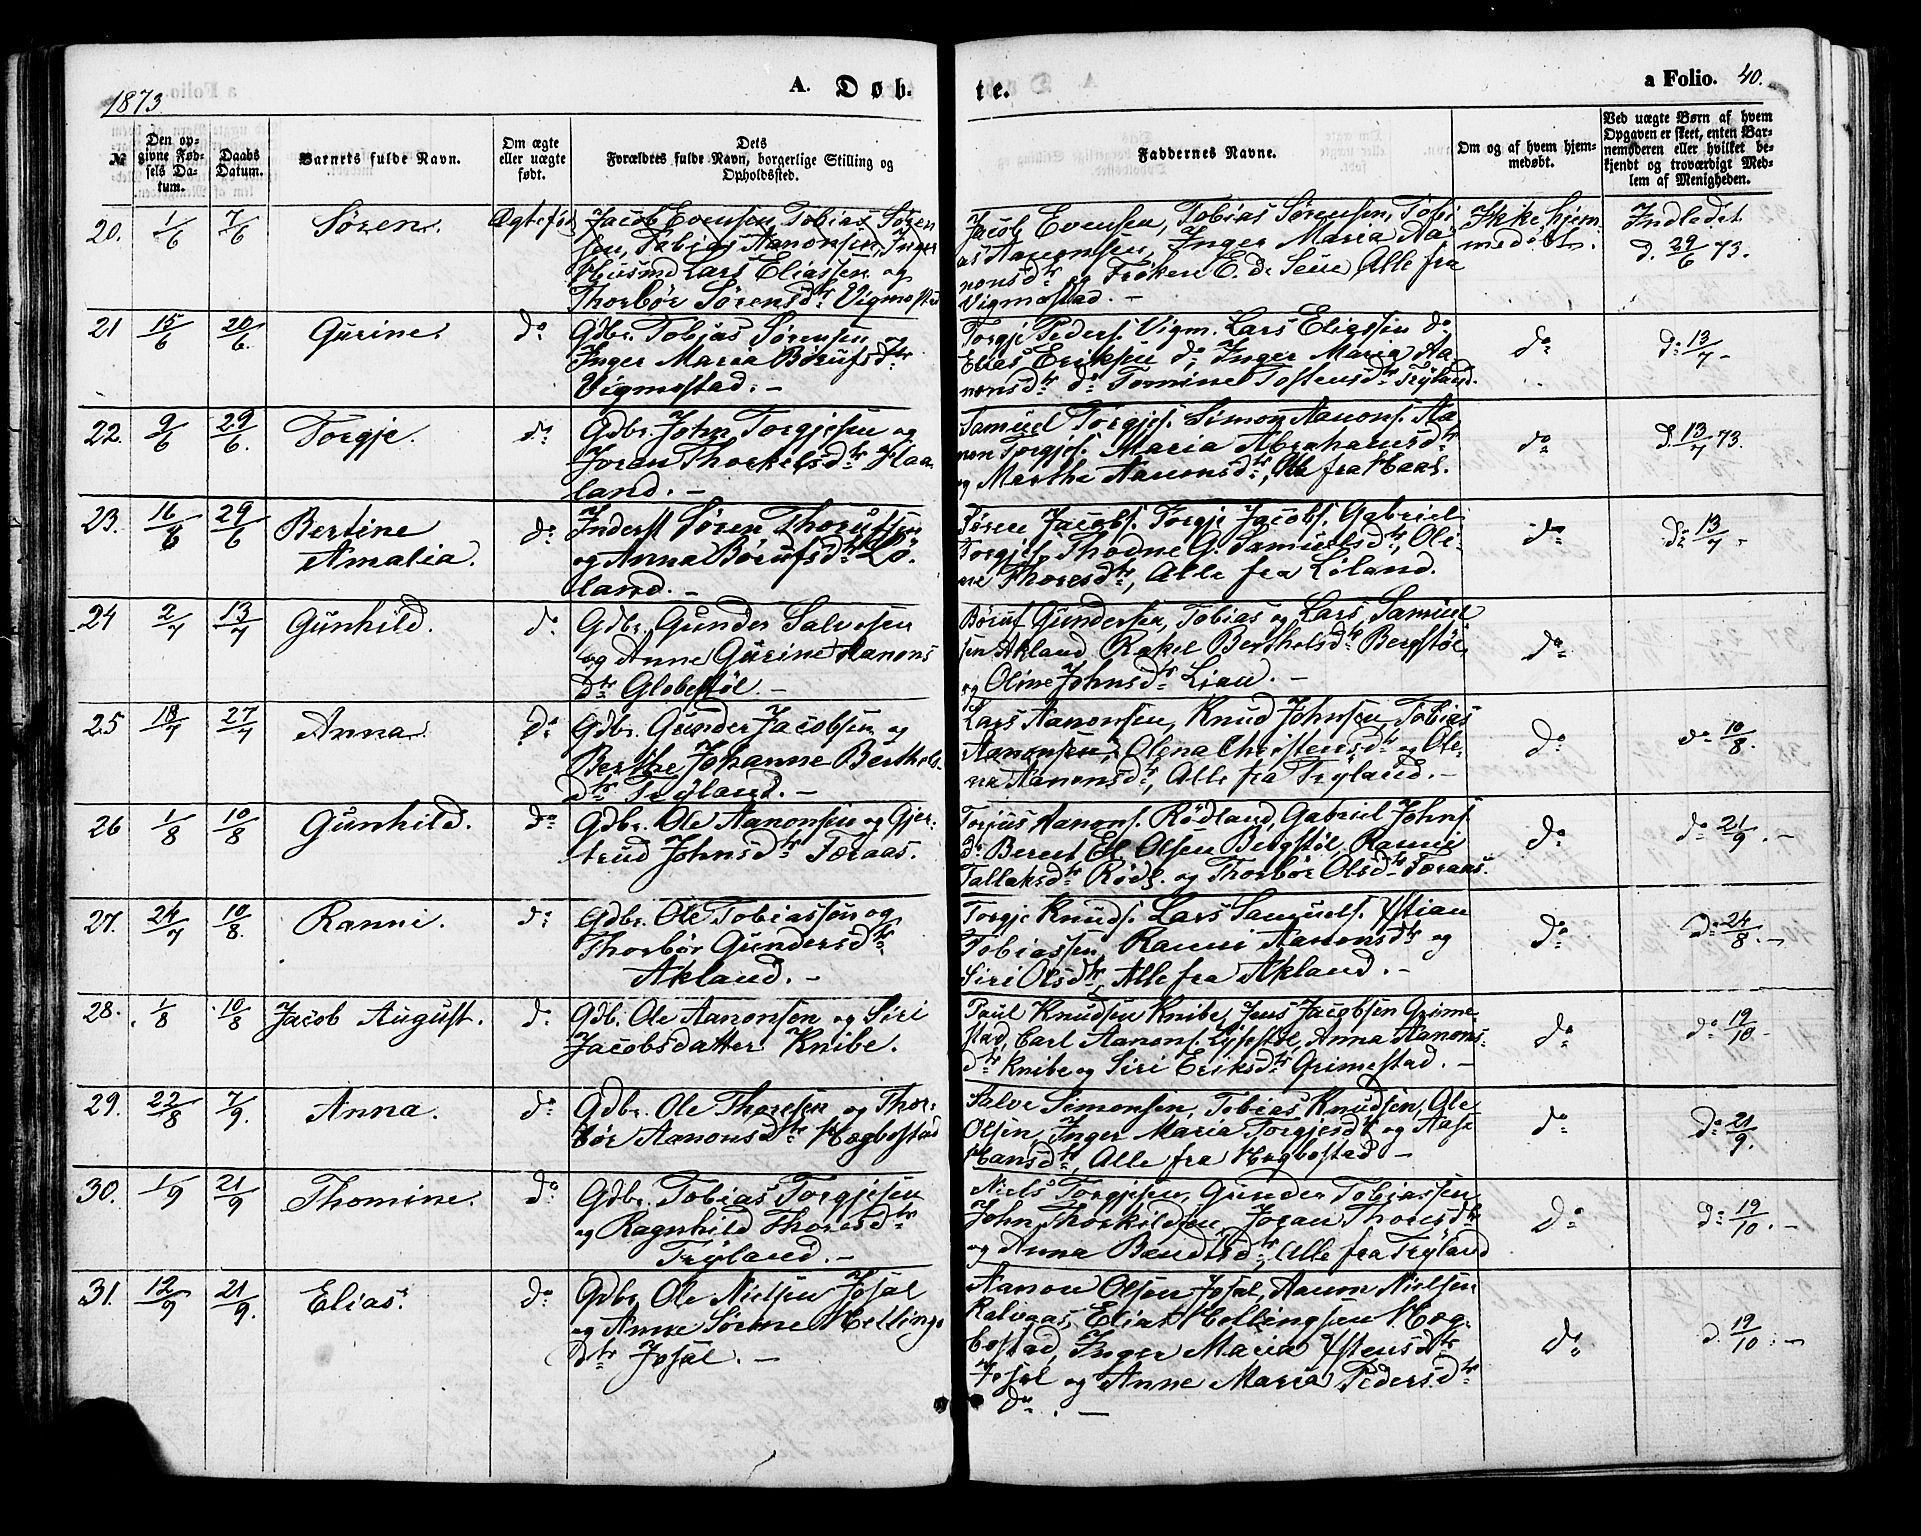 1873
A. Døb-
te.
a Folio. 40.
№
Den opgivne Fødsels Datum.
Daabs Datum.
Barnets fulde Navn.
Om ægte eller uægte født.
Dets Forældres fulde Navn, borgerlige Stilling og Opholdssted.
Faddernes Navne.
Om og af hvem hjemmedøbt.
Ved uægte Børn af hvem Opgaven er skeet, enten Barnemoderen eller hvilket bekjendt og troværdigt Medlem af Menigheden.
20. 1/6 7/6 Sören. Ægtefød
Jacob Evensen, Tobias Sören
sen, Tobias Aanonsen, Inger
Husmd Lars Eliassen og
Thorbör Sörensdtr Vigmostad
Jacob Evensen, Tobias Sörensen, Tobi
as Aanonsen, Inger Maria Aa
nonsdtr og Fröken E. de Seue, Alle fra
Vigmostad. –
Ikke hjem
medöbt.
Indledet
d. 29/6 73.
21 15/6 20/6. Gurine. do
Gdbr. Tobias Sörensen og
Inger Maria Börufsdtr
Vigmostad. –
Torgje Peders. Vigm. Lars Eliassen do
Elias Eriksen do, Inger Maria Aa
nonsdtr do Tomine Tostensdtr Tryland.
do
do 13/7 –
22. 9/6 29/6. Torgje. do
Gdbr. John Torgjesen og
Joran Thorkelsdtr Haa
land. –
Samuel Torgjes. Simon Aanons. Aa
non Torgjes. Maria Abrahamsdtr
og Marthe Aanonsdtr, Alle fra Haal.
do
d. 13/7 73.
23. 16/6 29/6 Bertine
Amalia. do
Inderst Sören Thorufsen
og Anna Börufsdtr Lö
land. –
Sören Jacobs. Torgje Jacobs. Gabriel
Torgjes, Thodne G. Samuelsdtr, Oli
ne Thoresdtr, Alle fra Löland.
do
do 13/7 –
24 2/7 13/7 Gunhild. do
Gdbr. Gunder Salvesen
og Anne Gurine Aanons
dtr Globestöl. –
Böruf Gundersen, Tobias og Lars Samuel
sen Akland, Rakel Berthelsdtr Bergstöl,
og Oline Johnsdtr Lian. –
do
25 18/7 27/7 Anna. do
Gdbr. Gunder Jacobsen og
Berthe Johanne Berthels
dtr Tryland. –
Lars Aanonsen, Knud Johnsen, Tobias
Aanonsen, Olena Christensdtr og Ole
na Aanonsdtr, Alle fra Tryland. –
do
do 10/8.
26 1/8 10/8 Gunhild. do
Gdbr. Ole Aanonsen og Gjer
trud Johnsdtr Færaas.
Torjus Aanons. Rödland, Gabriel Johns.
do Berent El. Olsen Bergstöl, Ranni
Tallaksdtr Rödl. og Thorbör Olsdtr Færaas.
do
do 21/9. –
27. 24/7 10/8. Ranni. do
Gdbr. Ole Tobiassen og
Thorbör Gundersdtr
Akland. –
Torgje Knuds. Lars Samuels. Stian
Tobiassen, Ranni Aanonsdtr og
Siri Olsdtr, Alle fra Akland. –
do
do 24/8. –
28. 1/8 10/8 Jacob August. do
Gdb. Ole Aanonsen og Siri
Jacobsdatter Knibe.
Paul Knudsen Knibe, Jens Jacobsen Grime
stad, Carl Aanons. Lysestöl, Anna Aanons
dtr Knibe og Siri Eriksdtr Grimestad. –
do
do 19/10 –
29. 22/8 7/9. Anna. do
Gdbr. Ole Thoresen og Thor
bör Aanonsdtr Högbostad
Salve Simonsen, Tobias Knudsen, Ole
Olsen, Inger Maria Torgjesdtr og Aase
Hansdtr, Alle fra Högbostad –
do
do 21/9.
30. 1/9 21/9 Thomine. do
Gdbr. Tobias Torgjesen
og Ragnhild Thoresdtr
Tryland. –
Niels Torgjesen, Gunder Tobiassen
John Thorkildsen, Joran Thoresdtr
og Anna Bendtsdtr, Alle fra Tryland
do
do 19/10. –
31. 12/9 21/9. Elias. do
Gdbr. Ole Nielsen Josal
og Anne Sörine Hellings
dtr Josal. –
Aanon Olsen Josal, Aanon Nielsen
Kalvaas, Elias Hellingsen Høg
bostad, Inger Maria Ystensdtr
Josal og Anne Maria Pedersdtr
do. –
do
d. 19/10. –